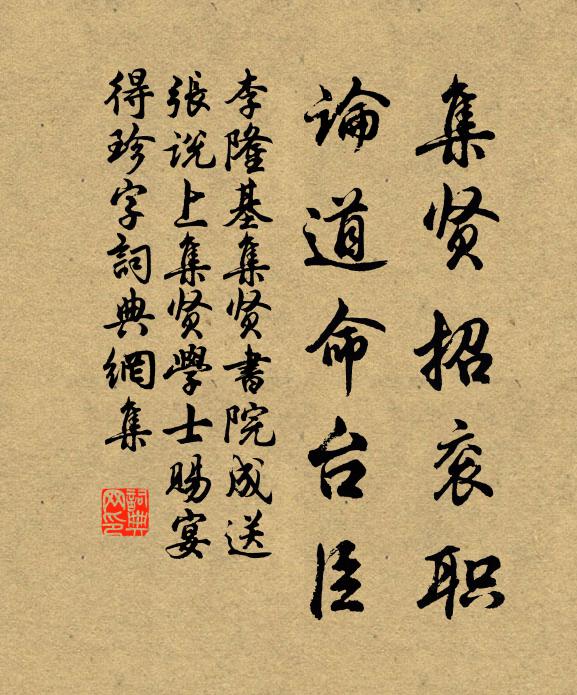 集贤招衮职
论道命台臣
李隆基集贤書院成送
張说上集贤學士賜宴
得珍字詞典網集
詞典
网印